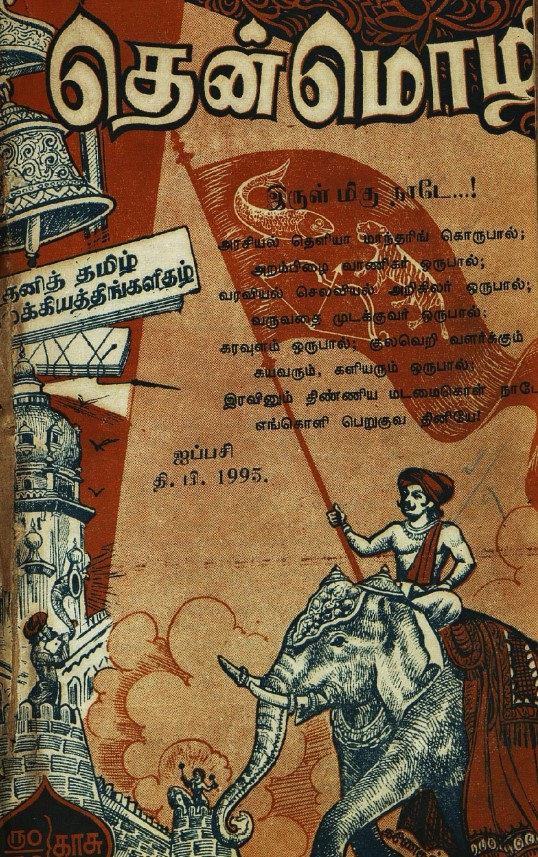 தென்மொழி
இருள் மிகு நாடே...!
அரசியல் தெளியா மாந்தரிங் கொருபால்;
அறம்பிழை வாணிகர் ஒருபால்;
வரவியல் செலவியல் அறிகிலர் ஒருபால்;
வருவதை முடக்குவர் ஒருபால்;
கரவுளம் ஒருபால்; குலவெறி வளர்க்கும்
கயவரும், களியரும் ஒருபால்;
இரவினும் திண்ணிய மடமைகொள் நாடே
எங்கொளி பெறுகுவ தினியே!
தனித் தமிழ்
இலக்கியத்திங்களிதழ்
ஐப்பசி
தி. பி. 1995.
ரூ0
காசு